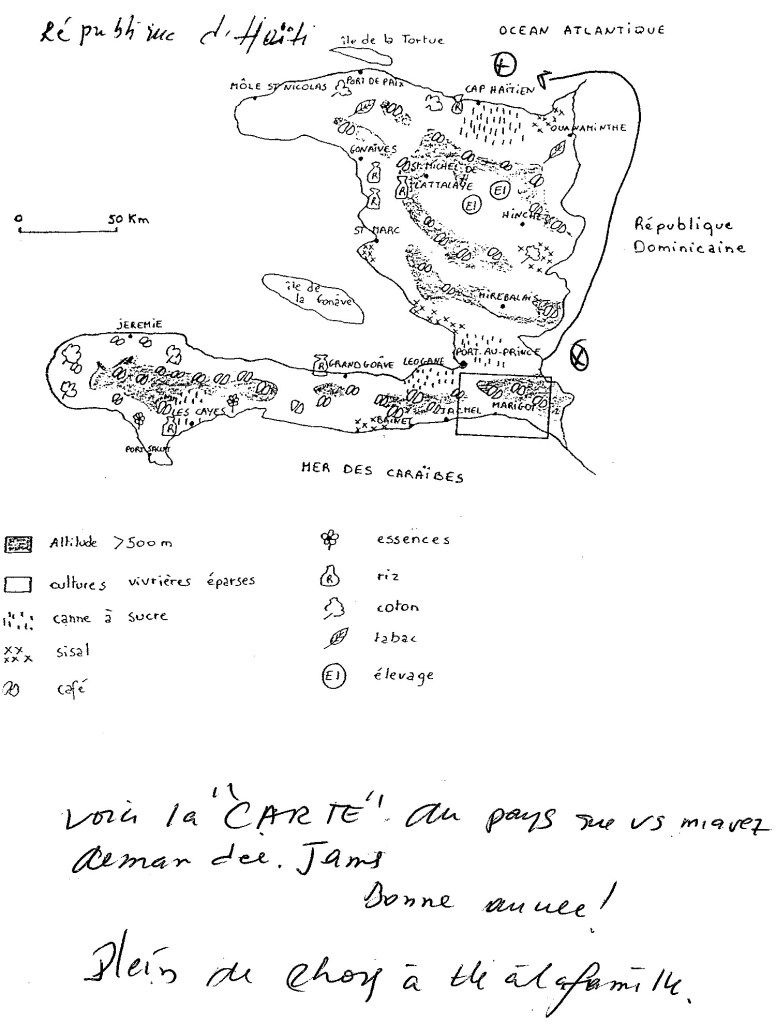 République d'Haïti
île de la Tortue
OCEAN ATLANTIQUE
MÔLE ST NICOLAS
PORT DE PAIX
CAP HAÏTIEN
OUANAMINTHE
GONAÏVES
ST MICHEL DE
L'ATTALAYE
R
R
R
R
El
El
HINCHE
0 50 Km
ST MARC
République
Dominicaine
île de
la Gonâve
MIREBALAIS
JEREMIE
R
GRAND GOÂVE
LEOGANE
PORT-AU-PRINCE
LES CAYES
R
BAINET
JACMEL
MARIGOT
PORT SALUT
MER DES CARAÏBES
Altitude >500m
cultures vivrières éparses
canne à sucre
sisal
café
essences
R riz
coton
tabac
El élevage
Voici la "CARTE" du pays que vs m'avez
demandée.
Bonne année!
Plein de à à la famille.